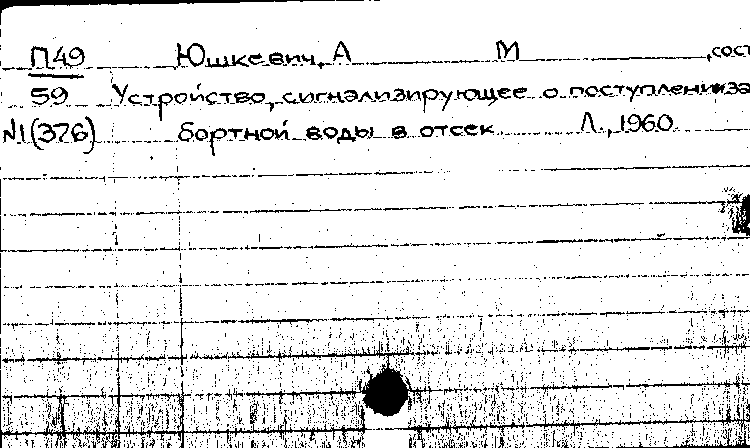 П49 Юшкевич, А М ,сост
59 Устройство, сигнализирующее о поступлении за
№1(376) бортной воды в отсек Л., 1960